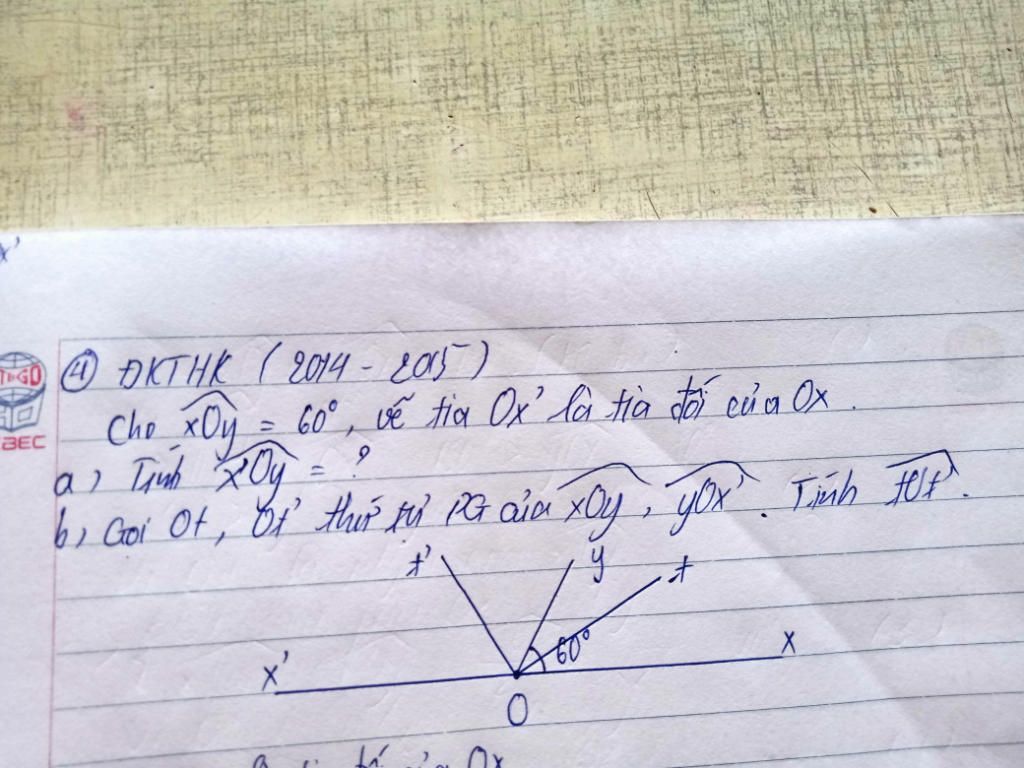 x'
④ ĐKTHK (2014 - 2015)
Cho xOy = 60°, vẽ tia Ox' là tia đối của Ox.
a) Tính x'Oy = ?
b) Gọi Ot, Ot' thứ tự PG của xOy, yOx'. Tính tOt'.
t' y t
60°
x' x
O
BEC